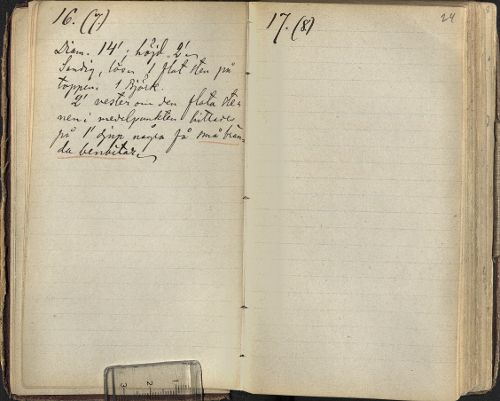 16. (7)
Diam. 14'; höjd 2'.
Sandig, lös. 1 flat sten på
toppen. 1 Björk.
2' vester om den flata ste-
nen i medelpunkten hittades
på 1' djup några få små brän-
da benbitar.
17. (8)
24
3 2 1